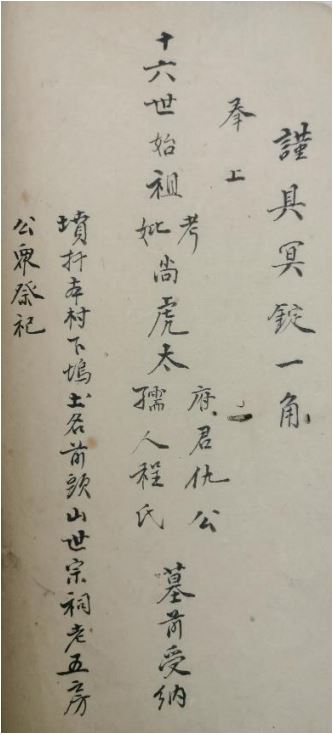 謹具冥錠一角
奉上
十六世始祖考妣尚虎太府君仇公孺人程氏墓前受納
墳扦本村下塢土名前頭山世宗祠老五房
公衆祭祀